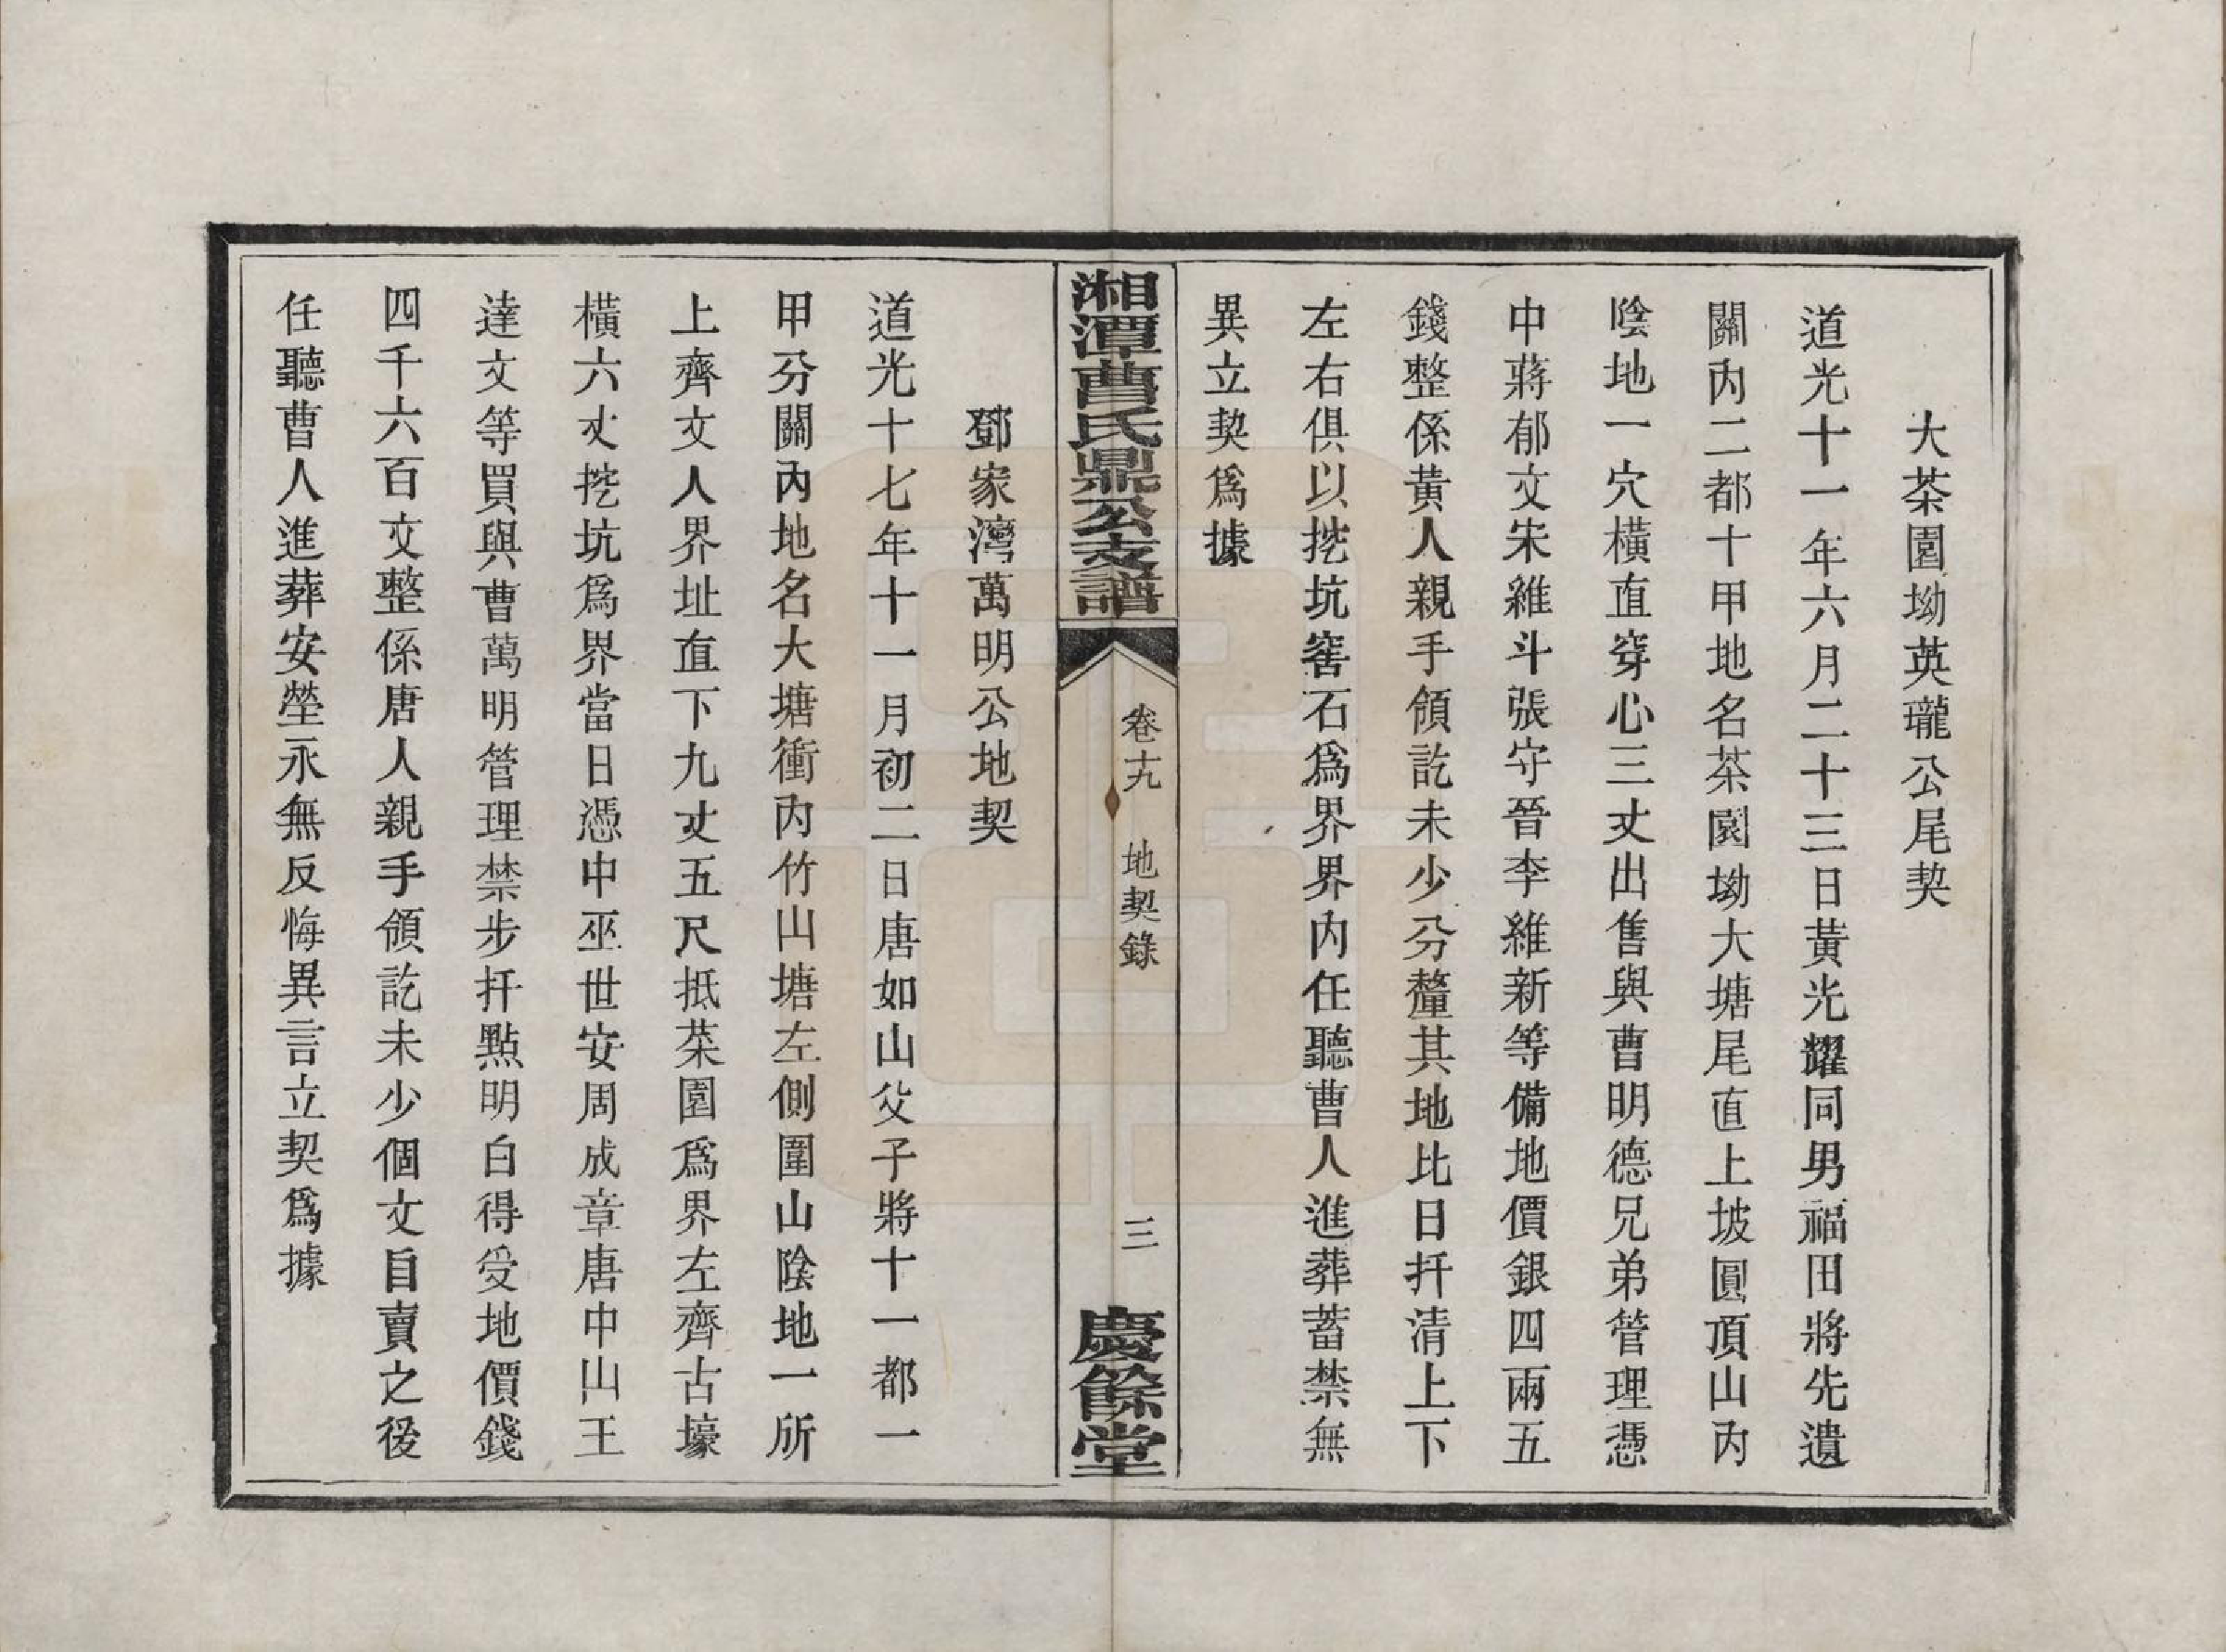 大茶園坳英瓏公尾契
道光十一年六月二十三日黃光耀同男福田將先遺
關內二都十甲地名茶園坳大塘尾直上坡圓頂山內
陰地一穴橫直穿心三丈出售與曹明德兄弟管理憑
中蔣郁文朱維斗張守晉李維新等備地價銀四兩五
錢整係黃人親手領訖未少分釐其地比日扦清上下
左右俱以挖坑窖石爲界界內任聽曹人進葬蓄禁無
異立契爲據
湘潭曹氏鼎公支譜
卷十九
地契錄
三
慶餘堂
鄧家灣萬明公地契
道光十七年十一月初二日唐如山父子將十一都一
甲分關內地名大塘衝內竹山塘左側圍山陰地一所
上齊文人界址直下九丈五尺抵茶園爲界左齊古壕
橫六丈挖坑爲界當日憑中巫世安周成章唐中山王
達文等買與曹萬明管理禁步扦點明白得受地價錢
四千六百文整係唐人親手領訖未少個文自賣之後
任聽曹人進葬安塋永無反悔異言立契爲據